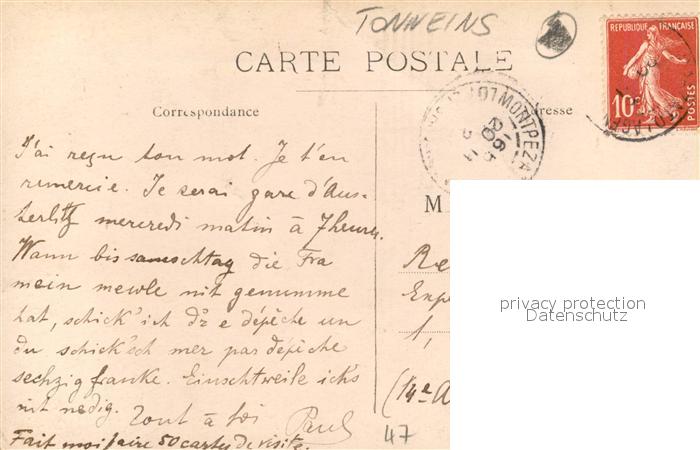 TONNEINS
CARTE POSTALE
RÉPUBLIQUE FRANÇAISE
10
POSTES
Correspondance
MONTPEZA
J'ai reçu ton mot. Je t'en
remercie. Je serai gare d'Aus-
terlitz mercredi matin à 7 heures.
Wann bis samschtag die Fra
mein mewle nit genumme
hat, schick' ich d'r e dépêche un
du schick'sch mer par dépêche
sechzig franke. Einschtweile ich's
nit nedig. Tout à toi Paul
Fait moi faire 50 cartes de visite.
M
Re
Expé
1,
(14e A
47
privacy protection
Datenschutz